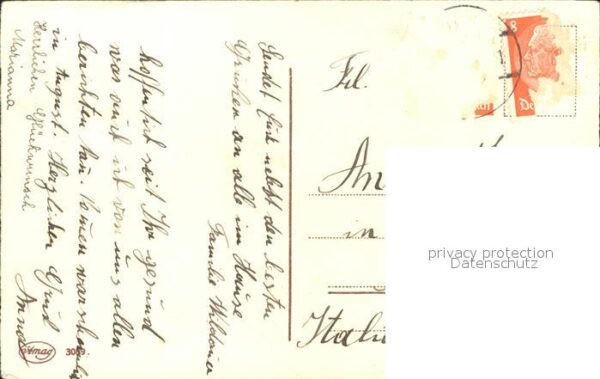 Sendet Euch nebst den besten
Grüssen an alle im Hause
Familie
hoffentlich seit Ihr gesund
was auch ich von uns allen
berichten kann. Kommen warscheinlich
in August. Herzlichen Gruß
Anna
Herzlichen Glückwunsch
Marianna
Frl.
An
in
Ital
Amag
3059.
8
privacy protection
Datenschutz